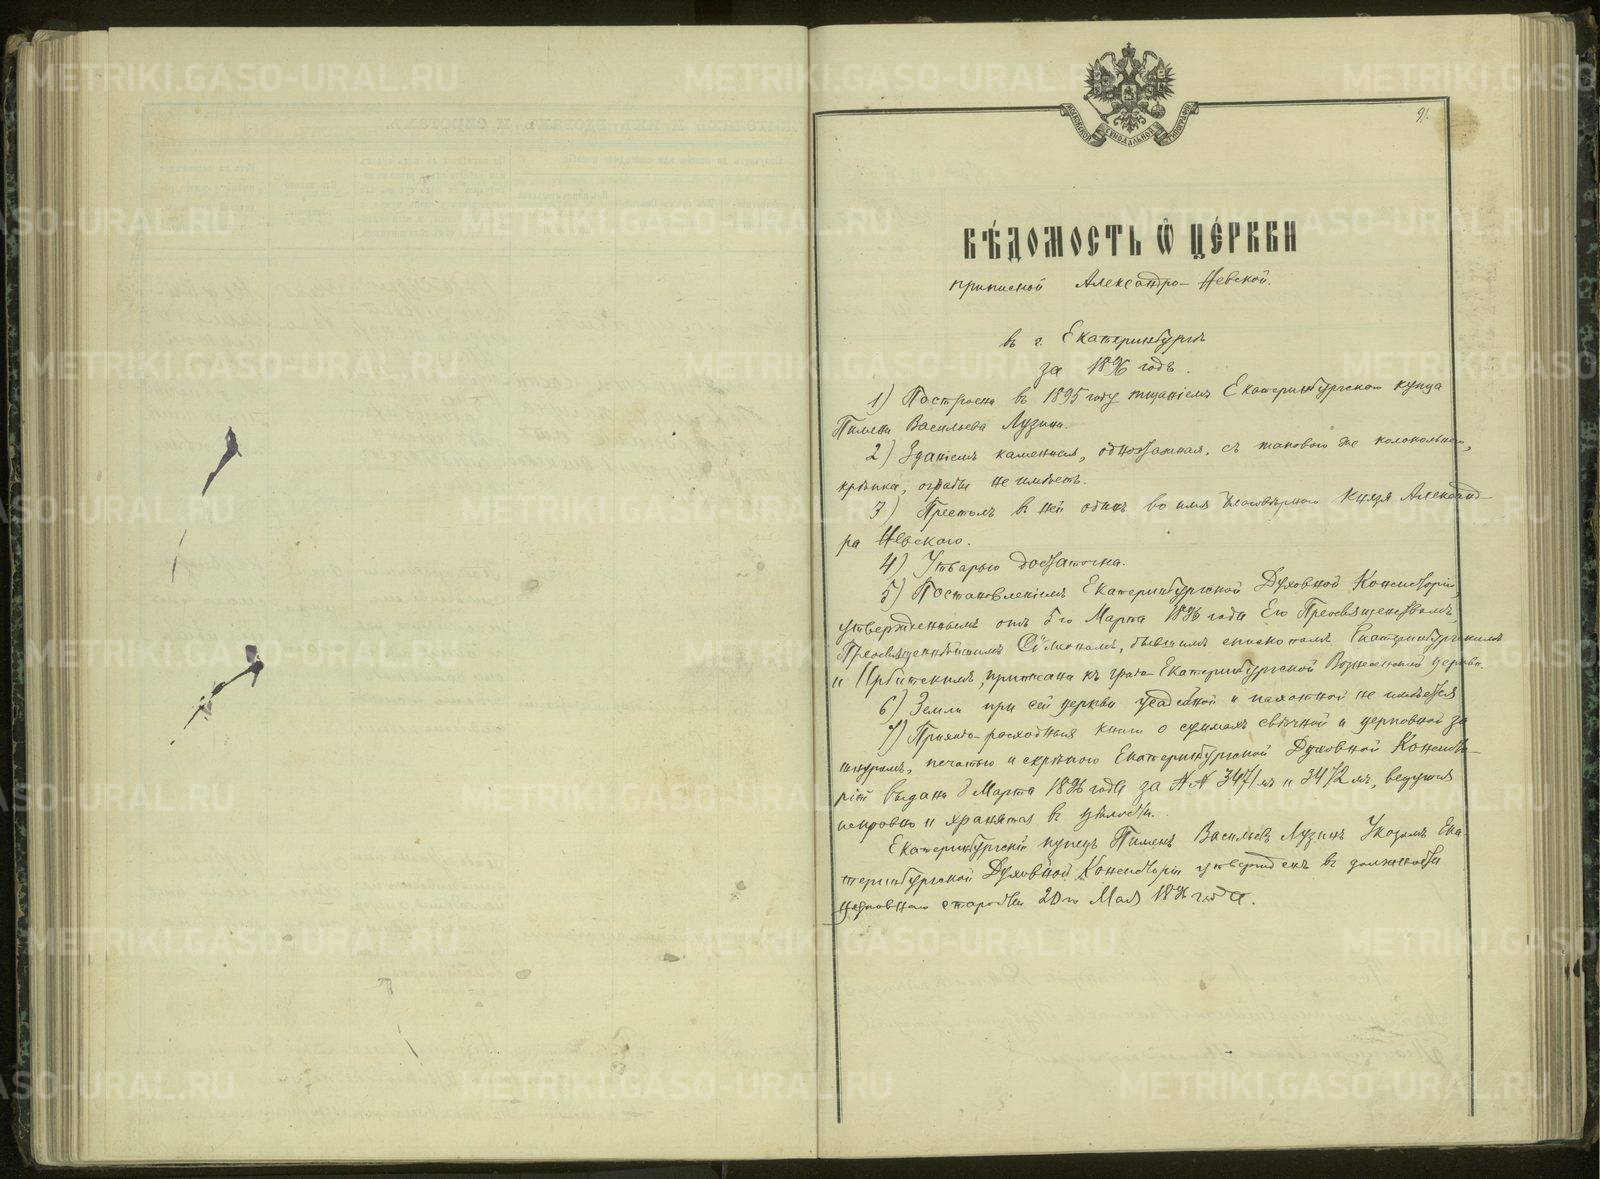 METRIKI.GASO-URAL.RU
МОСКОВСКОЙ СѴНОДАЛЬНОЙ ТИПОГРАФІИ
91.
ВѢДОМОСТЬ Ѽ ЦЕРКВИ
приписной Александро-Невской.
въ г. Екатеринбургѣ
за 1896 годъ.
1) Построена въ 1895 году тщаніемъ Екатеринбургскаго купца
Пимена Васильева Лузина.
2) Зданіемъ каменная, одноэтажная, съ таковою же колокольнею,
крѣпка, ограды не имѣетъ.
3) Престолъ въ ней одинъ во имя Благовѣрнаго Князя Александ-
ра Невскаго.
4) Утварью достаточна.
5) Постановленіемъ Екатеринбургской Духовной Консисторіи,
утвержденнымъ отъ 5го Марта 1896 года Его Преосвященствомъ,
Преосвященнѣйшимъ Сѵмеономъ, бывшимъ епископомъ Екатеринбургскимъ
и Ирбитскимъ, приписана къ градо-Екатеринбургской Вознесенской церкви.
6) Земли при сей церкви усадебной и пахотной не имѣется
7) Приходо-расходныя книги о суммахъ свѣчной и церковной за
шнуромъ, печатью и скрѣпою Екатеринбургской Духовной Консисто-
ріи выданы 8 Марта 1896 года за №№ 3471мъ и 3472мъ, ведутся
исправно и хранятся въ цѣлости.
Екатеринбургскій купецъ Пименъ Васильевъ Лузинъ Указомъ Ека-
теринбургской Духовной Консисторіи утвержденъ въ должности
церковнаго старосты 20го Мая 1896 года.